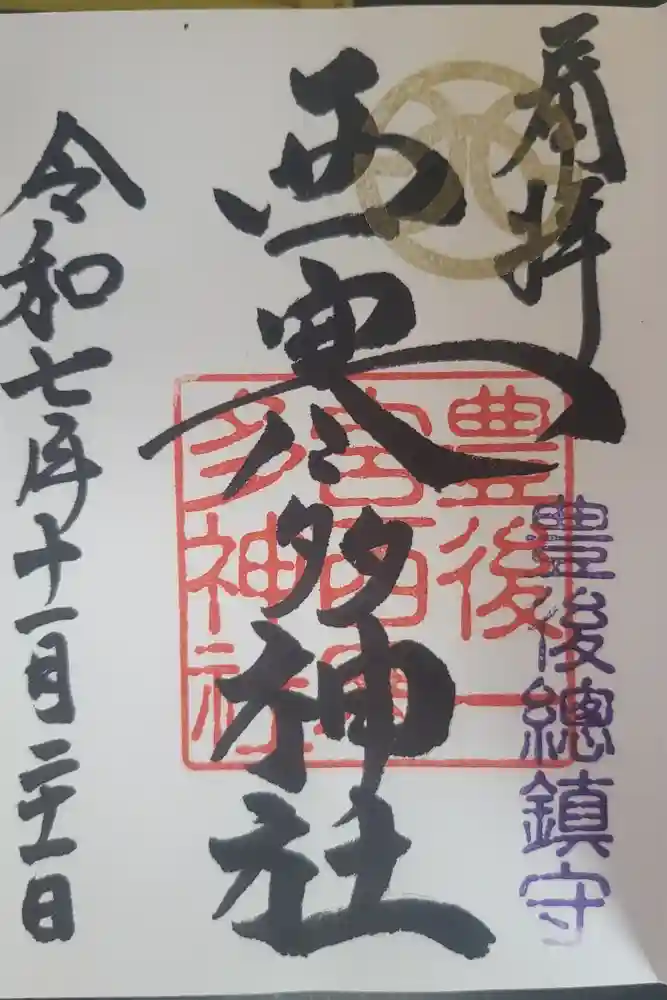 拝
豊後總鎮守
西寒多神社
豊後一
宮西寒
多神社
令和七年十一月二十一日